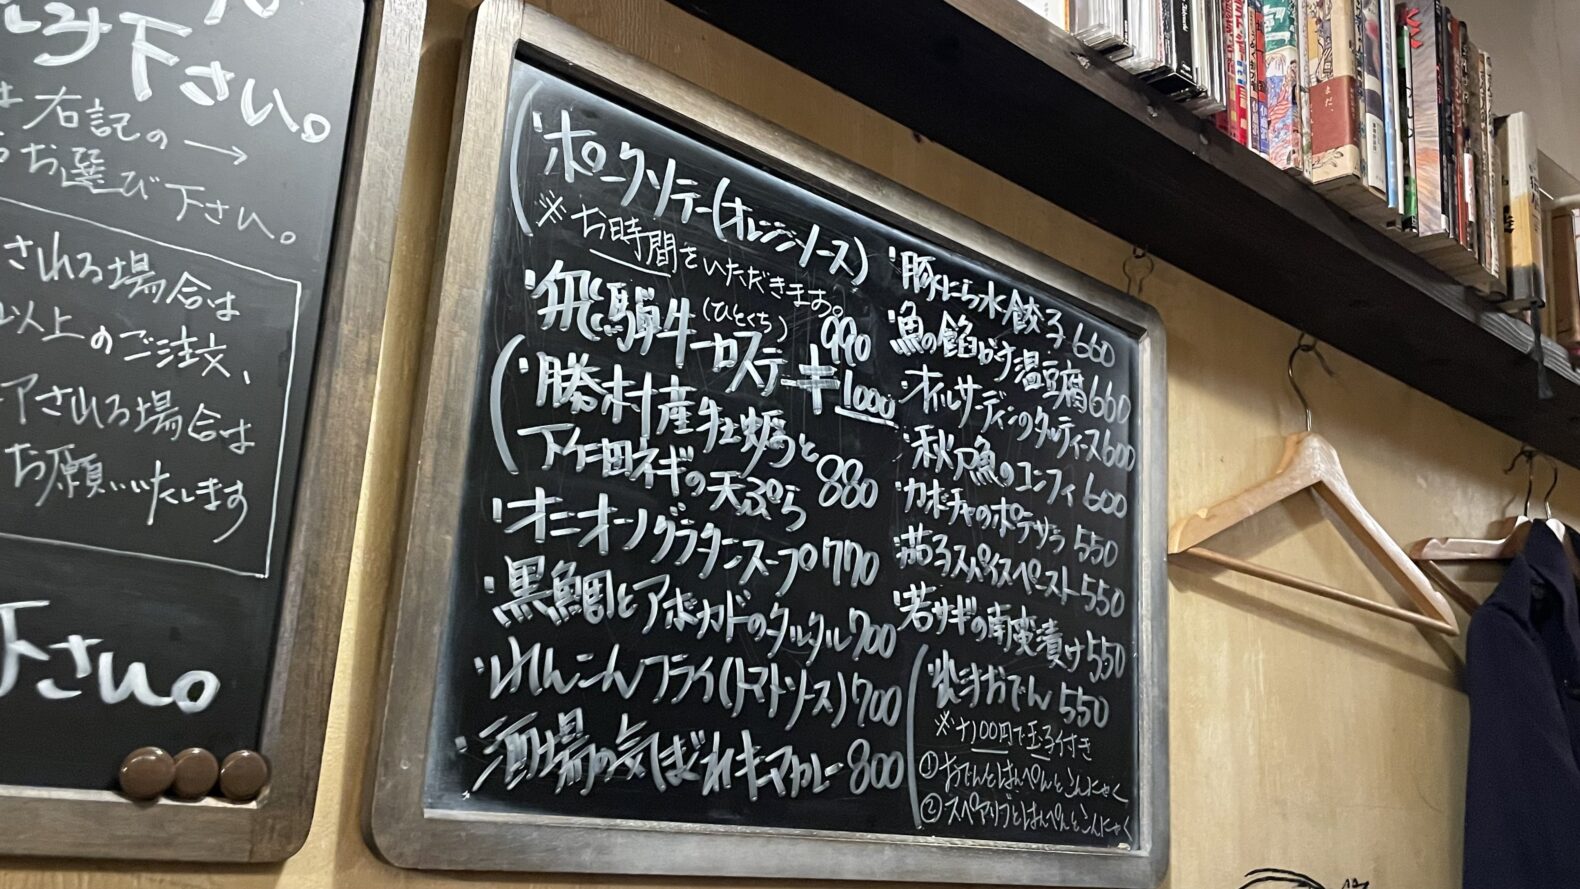 下さい。
右記の→
お選び下さい。
される場合は
以上のご注文、
アされる場合は
お願いいたします
下さい。
・ポークソテー(オレンジソース) 990
※お時間をいただきます。
・飛騨牛一口ステーキ 1000
(ひとくち)
・勝村産牡蠣と
下仁田ネギの天ぷら 880
・オニオングラタンスープ 770
・黒鯛とアボカドのタルタル 700
・れんこんフライ(トマトソース) 700
・酒場の気まぐれキーマカレー 800
・豚にら水餃子 660
・魚の餡かけ温豆腐 660
・オイルサーディンのタルティーヌ 600
・秋刀魚のコンフィ 600
・カボチャのポテサラ 550
・茄子スパイスペースト 550
・若サギの南蛮漬け 550
・焼きおでん 550
※+100円で玉子付き
①おでんとはんぺんとこんにゃく
②スペアリブとはんぺんとこんにゃく